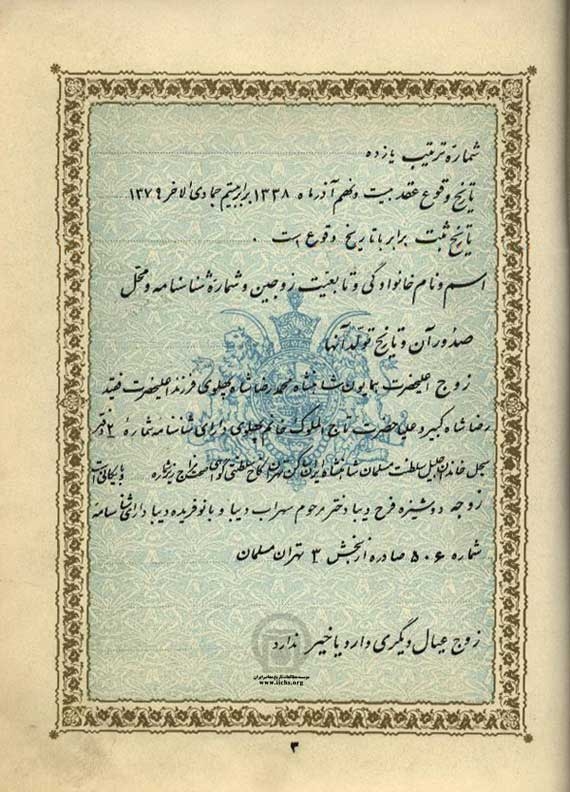 شمارهٔ ترتیب یازده
تاریخ وقوع عقد بیست و نهم آذرماه ۱۳۳۸ برابر بیستم جمادی الاخر ۱۳۷۹
تاریخ ثبت برابر با تاریخ وقوع است .
اسم و نام خانوادگی و تابعیت زوجین و شمارهٔ شناسنامه و محل
صدور آن و تاریخ تولد آنها
زوج اعلیحضرت همایون شاهنشاه محمد رضا شاه پهلوی فرزند اعلیحضرت فقید
رضا شاه کبیر و علیا حضرت تاج الملوک خانم پهلوی دارای شناسنامه شمارهٔ ۲ دفتر
سجل خاندان جلیل سلطنت مسلمان شاهنشاه ایران ساکن تهران کاخ سلطنتی گواهی صحت مزاج
زوجه دوشیزه فرح دیبا دختر مرحوم سهراب دیبا و بانو فریده دیبا دارای شناسنامه
شماره ۵۰۶ صادره از بخش ۳ تهران مسلمان
زوج عیال دیگری دارد یا خیر ندارد
موسسه مطالعات تاریخ معاصر ایران
www.iichs.org
۳